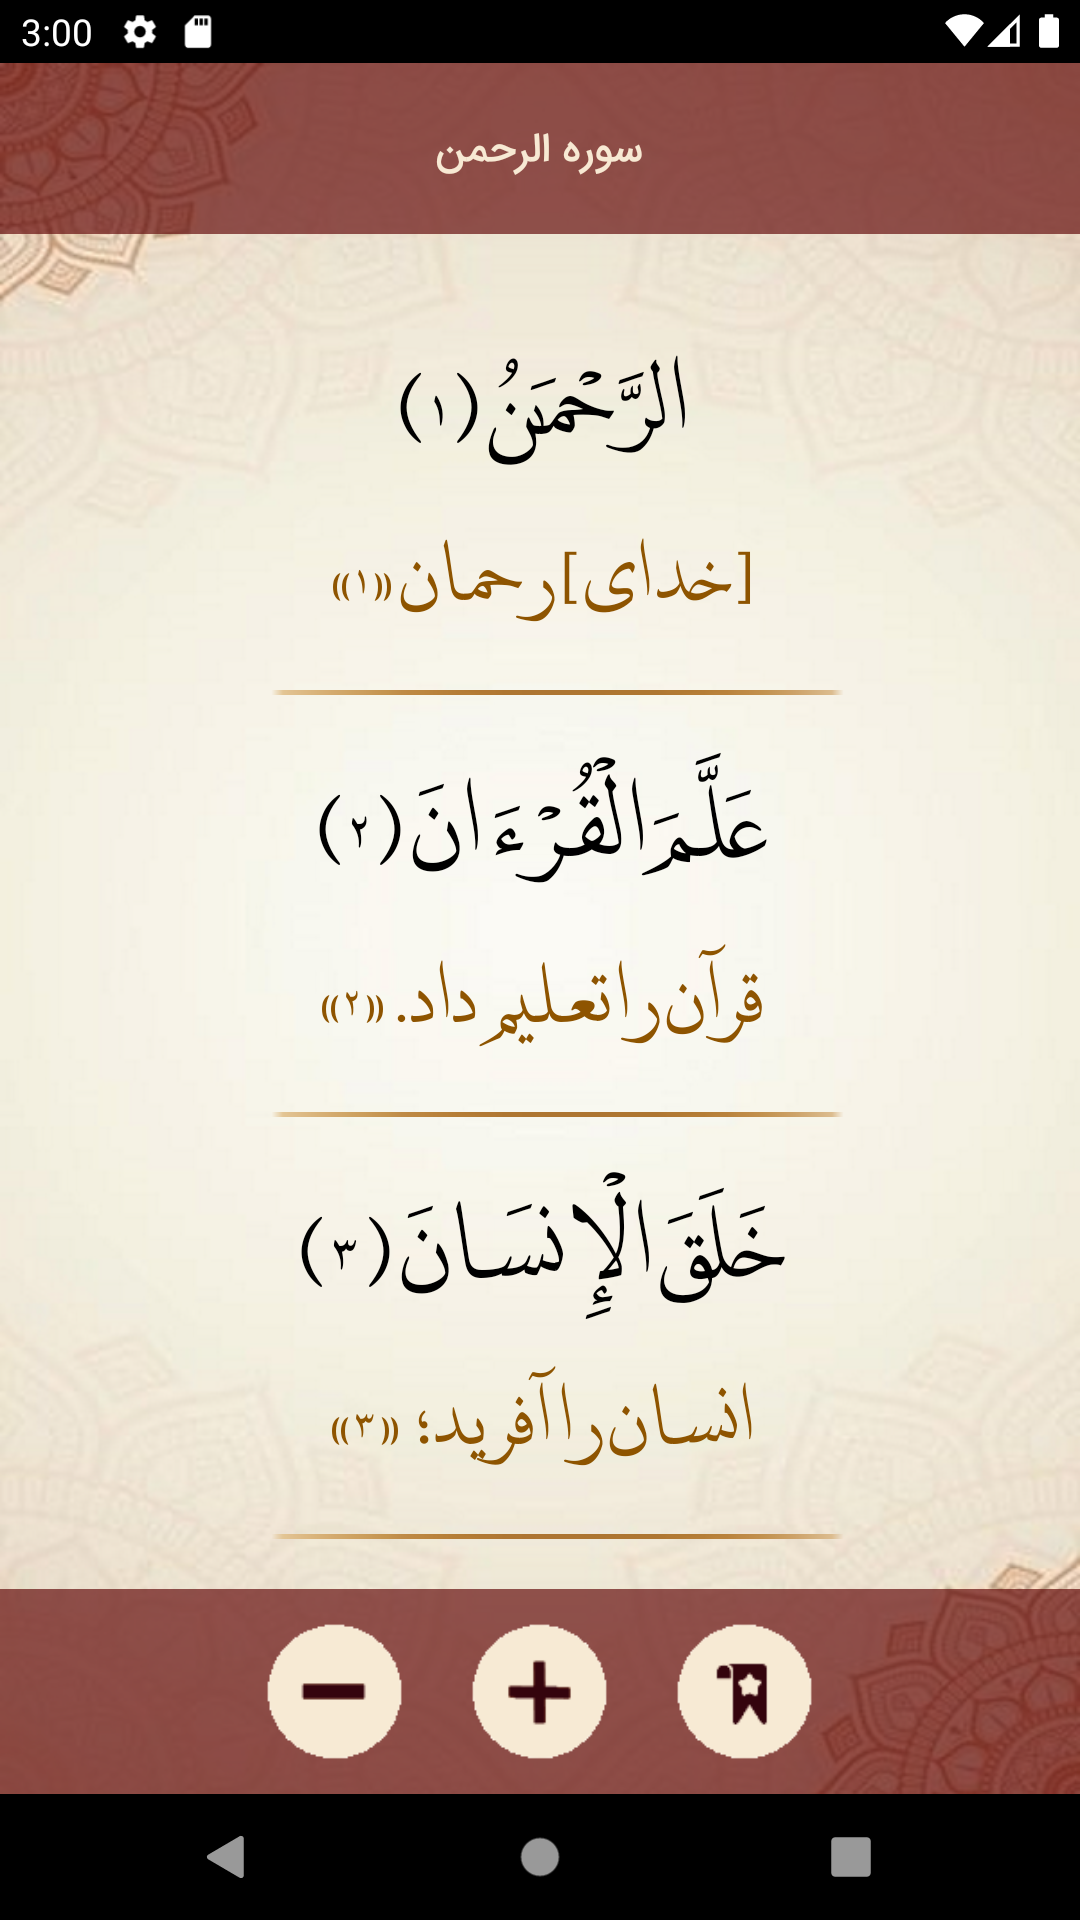 3:00
سوره الرحمن
الرَّحْمَٰنُ (۱)
[خدای] رحمان ((۱))
عَلَّمَ الْقُرْءَانَ (۲)
قرآن را تعلیم داد. ((۲))
خَلَقَ الْإِنسَانَ (۳)
انسان را آفرید؛ ((۳))